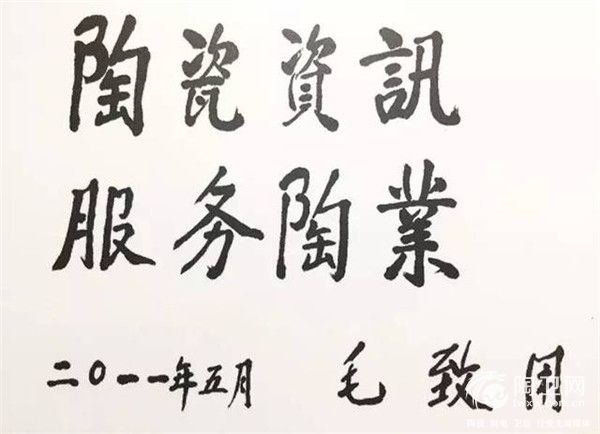 陶瓷資訊
服务陶業
二〇一一年五月 毛致用
陶卫网